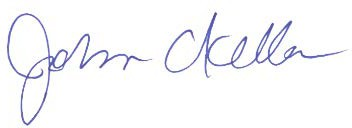 John Keller